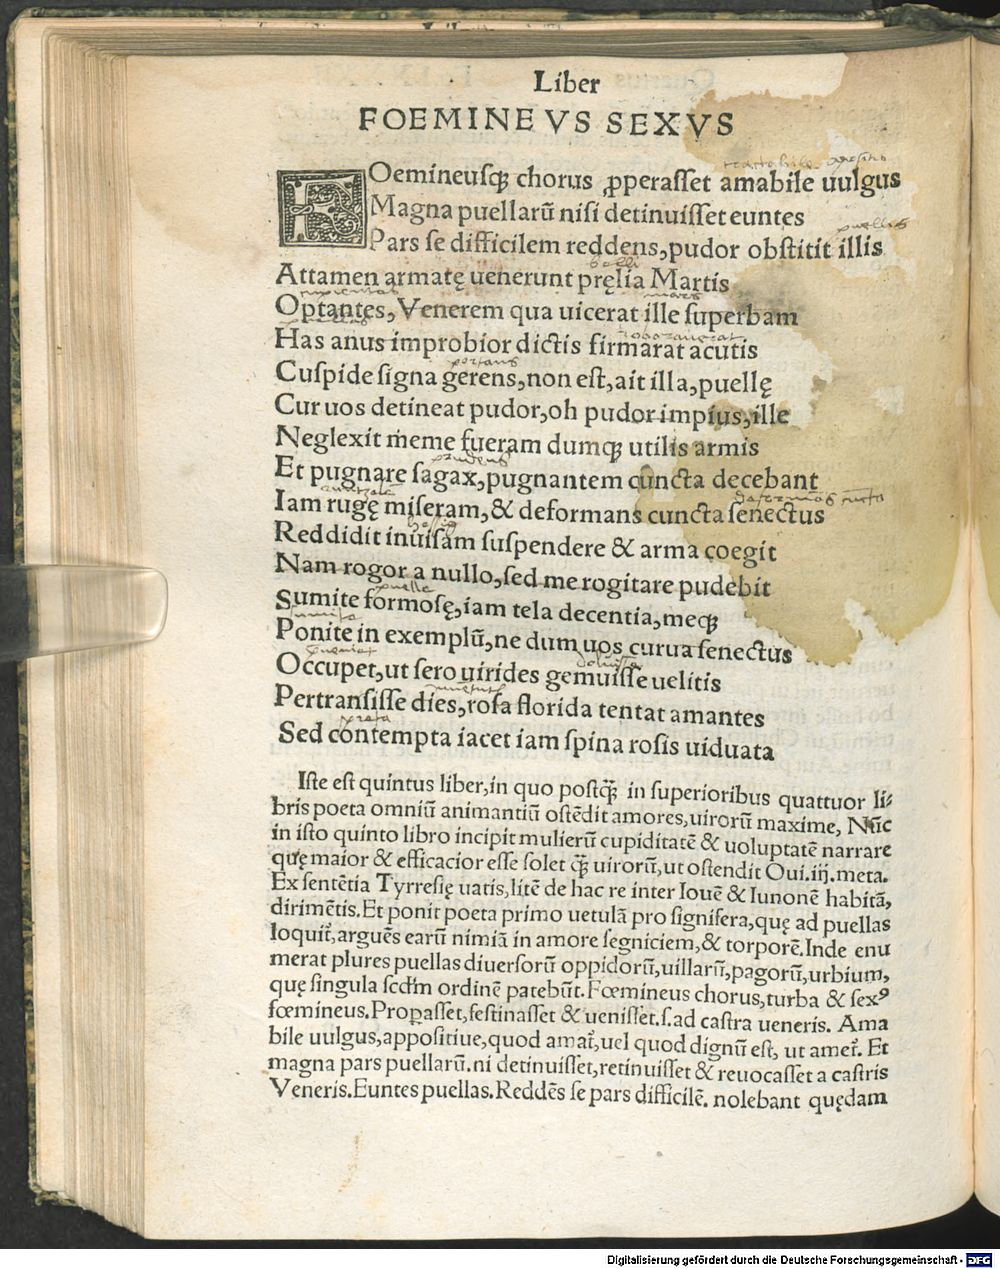 Liber
FOEMINEVS SEXVS
FOemineusq; chorus ꝓperasset amabile uulgus
Magna puellarũ nisi detinuisset euntes
Pars se difficilem reddens, pudor obstitit illis
Attamen armatę uenerunt pręlia Martis
Optantes, Venerem qua uicerat ille superbam
Has anus improbior dictis firmarat acutis
Cuspide signa gerens, non est, ait illa, puellę
Cur uos detineat pudor, oh pudor impius, ille
Neglexit meme fueram dumq; utilis armis
Et pugnare sagax, pugnantem cuncta decebant
Iam rugę miseram, & deformans cuncta senectus
Reddidit inuisam suspendere & arma coegit
Nam rogor a nullo, sed me rogitare pudebit
Sumite formosę, iam tela decentia, meq;
Ponite in exemplũ, ne dum uos curua senectus
Occupet, ut sero uirides gemuisse uelitis
Pertransisse dies, rosa florida tentat amantes
Sed contempta iacet iam spina rosis uiduata
Iste est quintus liber, in quo postq̃ in superioribus quattuor li⸗
bris poeta omniũ animantiũ ostẽdit amores, uirorũ maxime, Nũc
in isto quinto libro incipit mulierũ cupiditatẽ & uoluptatẽ narrare
quę maior & efficacior esse solet q̃ uirorũ, ut ostendit Oui. iij. meta.
Ex sentẽtia Tyrresię uatis, litẽ de hac re inter Iouẽ & Iunonẽ habitã,
dirimẽtis. Et ponit poeta primo uetulã pro signifera, quę ad puellas
loquit̃, arguẽs earũ nimiã in amore segniciem, & torporẽ. Inde enu
merat plures puellas diuersorũ oppidorũ, uillarũ, pagorũ, urbium,
quę singula scd̃m ordinẽ patebũt. Fœmineus chorus, turba & sexꝰ
fœmineus. Proꝑasset, festinasset & uenisset. s. ad castra ueneris. Ama
bile uulgus, appositiue, quod amat̃, uel quod dignũ est, ut amet̃. Et
magna pars puellarũ. ni detinuisset, retinuisset & reuocasset a castris
Veneris. Euntes puellas. Reddẽs se pars difficilẽ. nolebant quędam
Digitalisierung gefördert durch die Deutsche Forschungsgemeinschaft - DFG